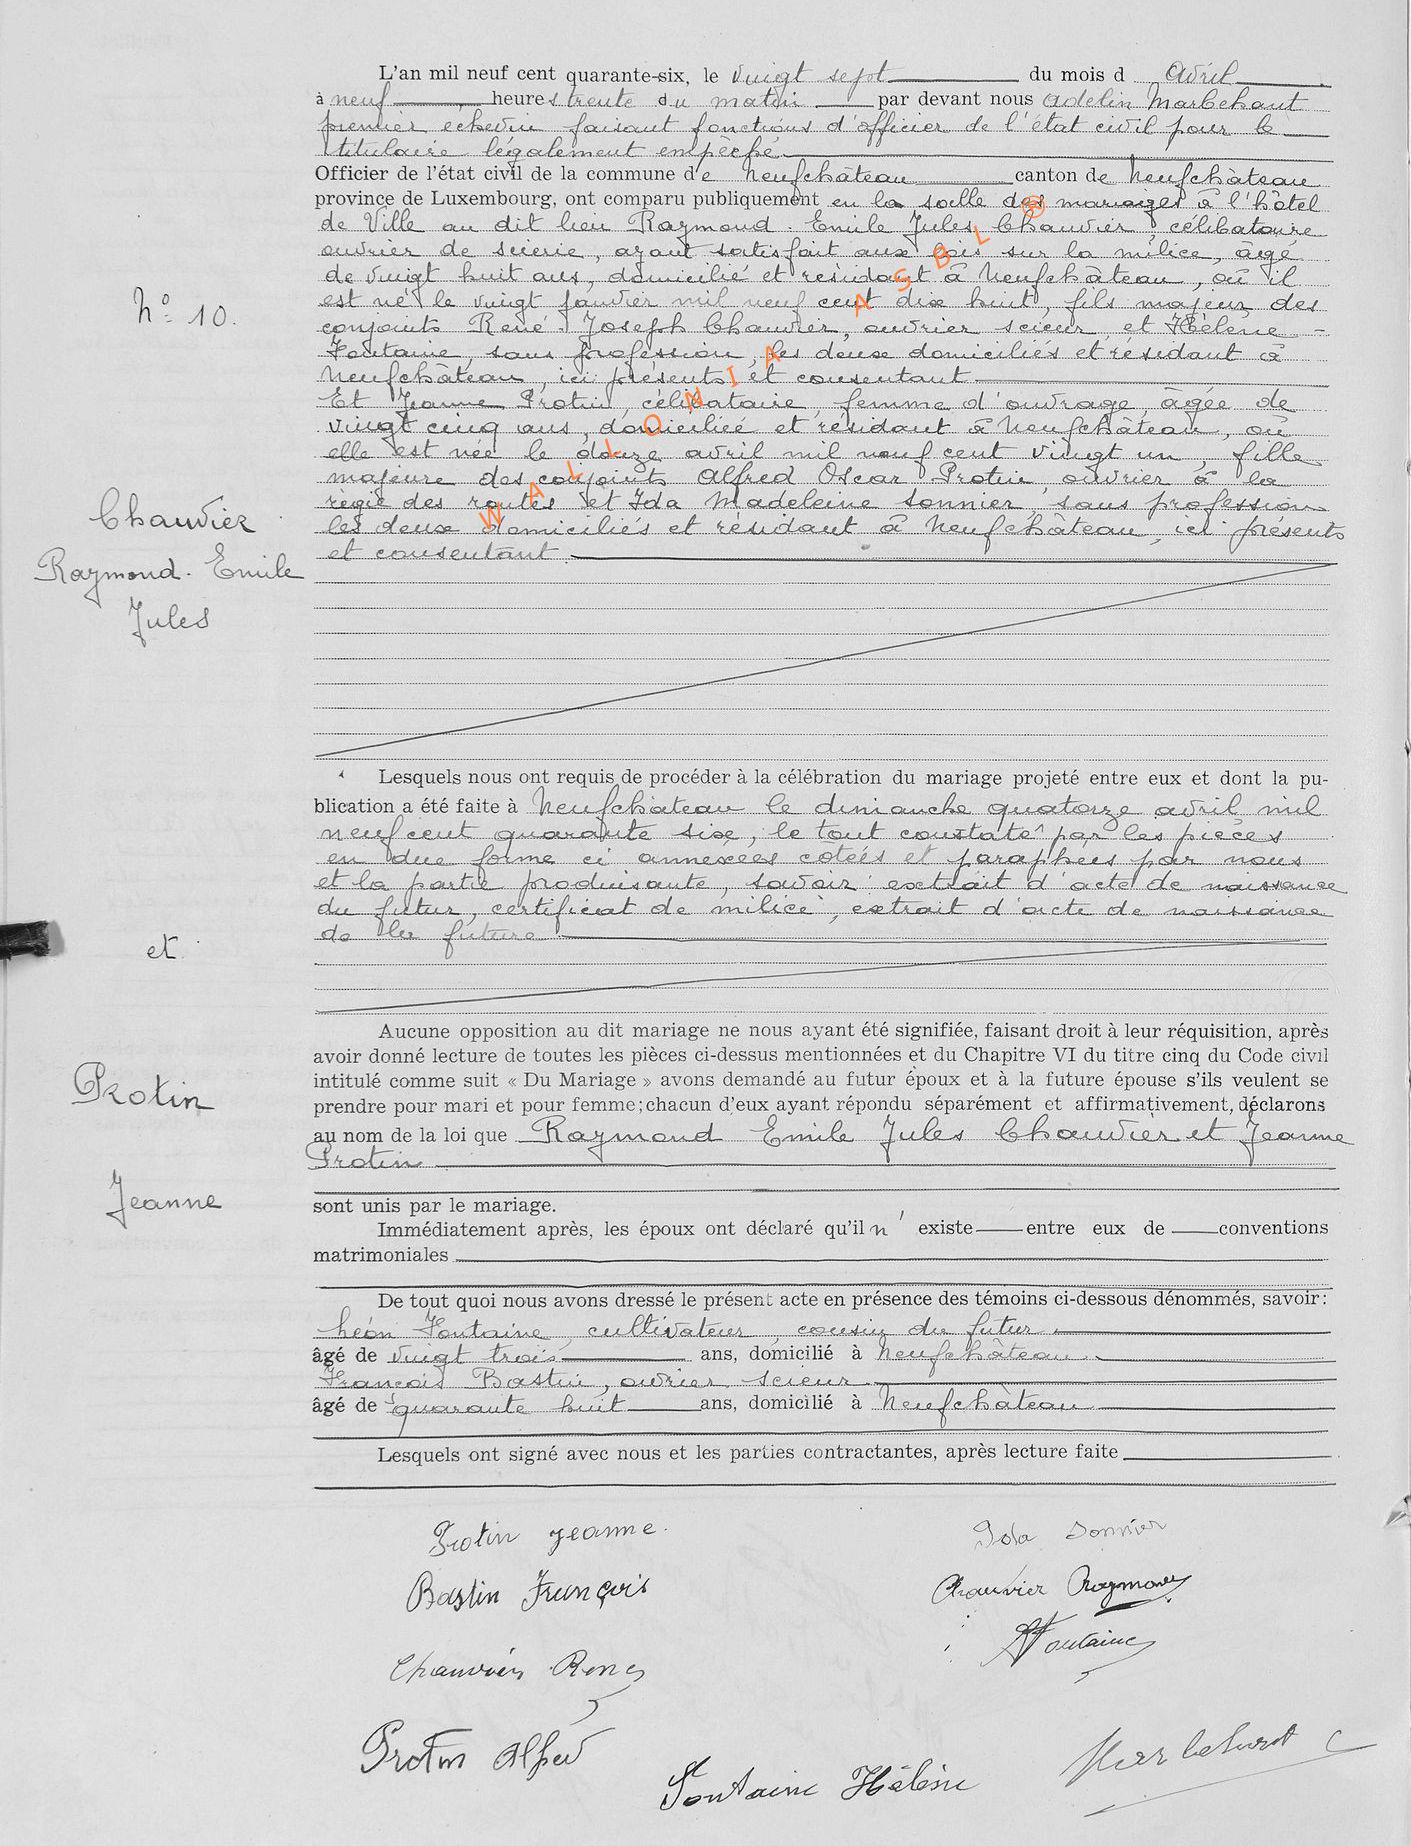 L'an mil neuf cent quarante-six, le vingt sept du mois d Avril
à neuf heures trente du matin par devant nous Adelin Marbehant
premier échevin faisant fonctions d'officier de l'état civil pour le
titulaire légalement empêché
Officier de l'état civil de la commune de Neufchâteau canton de Neufchâteau
province de Luxembourg, ont comparu publiquement en la salle des mariages à l'hôtel
de Ville au dit lieu Raymond. Emile Jules Chauvier, célibataire
ouvrier de scierie, ayant satisfait aux lois sur la milice, âgé
de vingt huit ans, domicilié et résidant à Neufchâteau, où il
est né le vingt janvier mil neuf cent dix huit, fils majeur des
conjoints René Joseph Chauvier, ouvrier scieur, et Hélène
Fontaine, sans profession, les deux domiciliés et résidant à
Neufchâteau, ici présents et consentant
Et Jeanne Protin, célibataire, femme d'ouvrage, âgée de
vingt cinq ans, domiciliée et résidant à Neufchâteau, où
elle est née le douze avril mil neuf cent vingt un, fille
majeure des conjoints Alfred Oscar Protin, ouvrier à la
régie des routes et Ida Madeleine Sonnier, sans profession
les deux domiciliés et résidant à Neufchâteau, ici présents
et consentant
WALLONIA ASBL ®
N° 10.
Chauvier
Raymond. Emile
Jules
et
Protin
Jeanne
Lesquels nous ont requis de procéder à la célébration du mariage projeté entre eux et dont la pu-
blication a été faite à Neufchâteau le dimanche quatorze avril mil
neuf cent quarante six, le tout constaté par les pièces
en due forme ci annexées cotées et paraphées par nous
et la partie produisante, savoir extrait d'acte de naissance
du futur, certificat de milice, extrait d'acte de naissance
de la future
Aucune opposition au dit mariage ne nous ayant été signifiée, faisant droit à leur réquisition, après
avoir donné lecture de toutes les pièces ci-dessus mentionnées et du Chapitre VI du titre cinq du Code civil
intitulé comme suit « Du Mariage » avons demandé au futur époux et à la future épouse s'ils veulent se
prendre pour mari et pour femme; chacun d'eux ayant répondu séparément et affirmativement, déclarons
au nom de la loi que Raymond Emile Jules Chauvier et Jeanne
Protin
sont unis par le mariage.
Immédiatement après, les époux ont déclaré qu'il n' existe entre eux de conventions
matrimoniales
De tout quoi nous avons dressé le présent acte en présence des témoins ci-dessous dénommés, savoir:
Léon Fontaine, cultivateur, cousin du futur
âgé de vingt trois ans, domicilié à Neufchâteau
François Bastin, ouvrier scieur
âgé de quarante huit ans, domicilié à Neufchâteau
Lesquels ont signé avec nous et les parties contractantes, après lecture faite
Protin Jeanne. Ida Sonnier
Bastin François Chauvier Raymond
Fontaine
Chauvier René
Protin Alfred
Fontaine Hélène